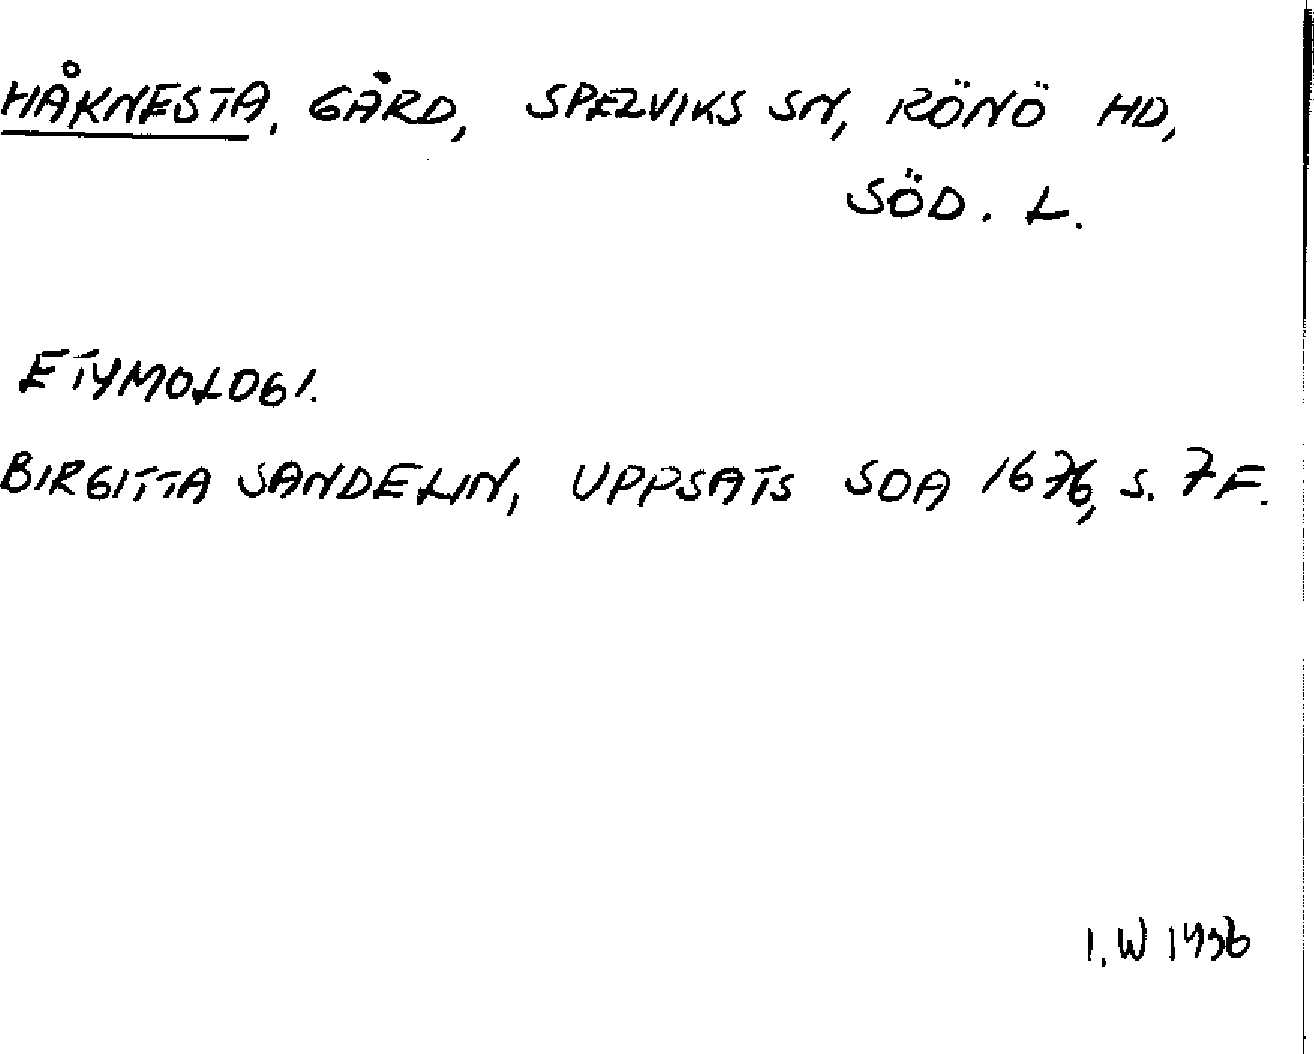 HÅKNESTA, GÅRD, SPELVIKS SN, RÖNÖ HD,
SÖD. L.
ETYMOLOGI.
BIRGITTA SANDELIN, UPPSATS SOA 1676, S. 7 F.
I. W